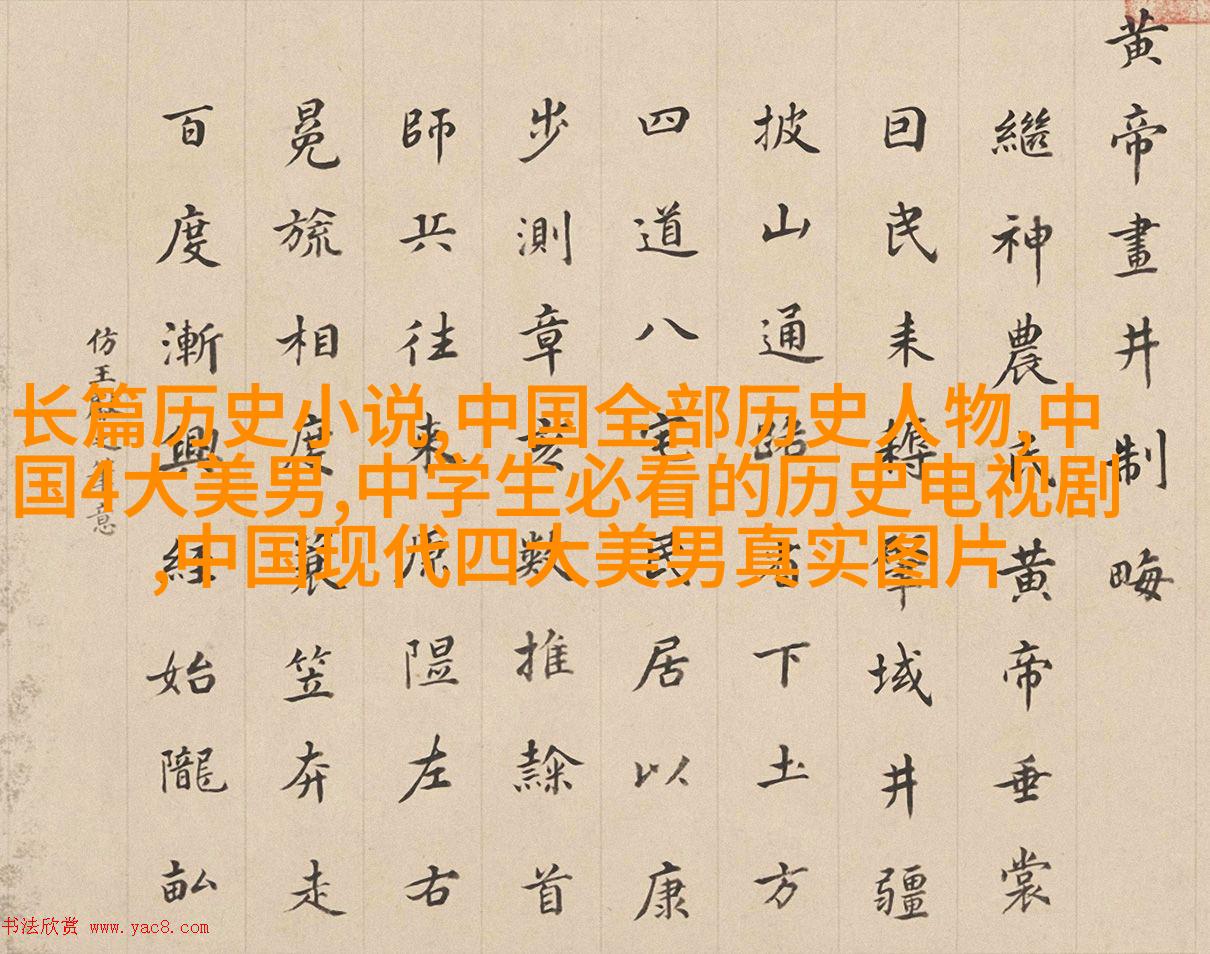 黄帝畫井制畮
繼神農氏黄帝垂裳
囙民耒耨肇域井疆
披山通路下土方
四道八宅民居以康
步測章亥數推隸首
師兵往來原隰左右
冕旒相度簑笠奔走
百度漸興經始隴畝
仿王筆意
长篇历史小说,中国全部历史人物,中
国4大美男,中学生必看的历史电视剧
,中国现代四大美男真实图片
书法欣赏 www.yac8.com